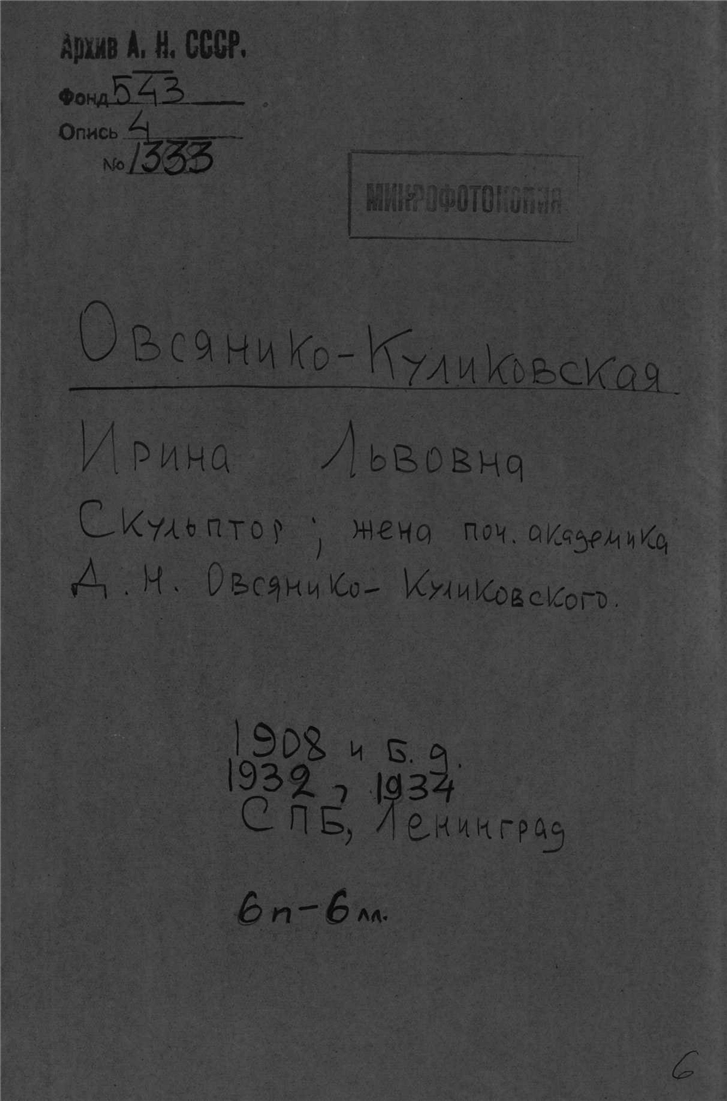 Архив А. Н. СССР.
Фонд 543
Опись 4
No 1333
МИКРОФОТОКОПИЯ
Овсянико-Куликовская
Ирина Львовна
Скульптор; жена поч. академика
Д. Н. Овсянико-Куликовского.
1908 и б. д.
1932, 1934
СПБ, Ленинград
6п-6лл.
6